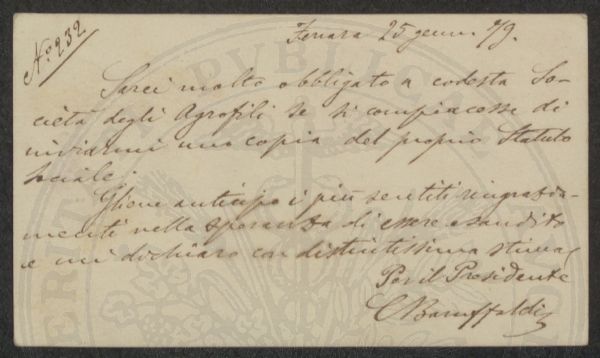 No. 232
Ferrara 25 genn. 79.
Sarei molto obbligato a codesta So-
cietà degli Agrofili se si compiacesse di
inviarmi una copia del proprio Statuto
Sociale.
Gliene anticipo i più sentiti ringrazia-
menti nella speranza di essere esaudito
e mi dichiaro con distintissima stima
Per il Presidente
C Baruffaldi